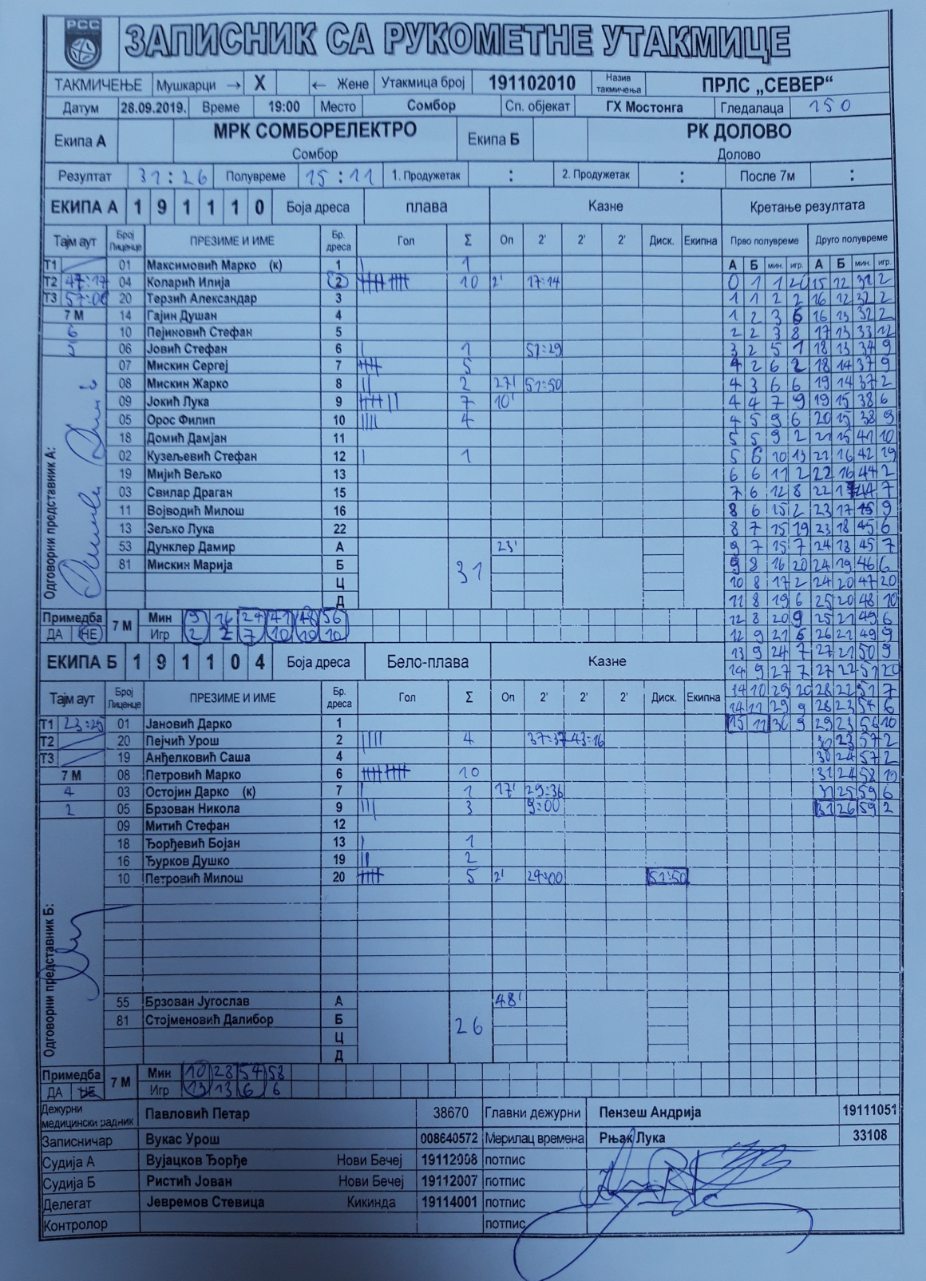 РСС
ЗАПИСНИК СА РУКОМЕТНЕ УТАКМИЦЕ
ТАКМИЧЕЊЕ Мушкарци → X ← Жене Утакмица број 191102010 Назив такмичења ПРЛС „СЕВЕР“
Датум 28.09.2019. Време 19:00 Место Сомбор Сп. објекат ГХ Мостонга Гледалаца 150
Екипа А МРК СОМБОРЕЛЕКТРО Екипа Б РК ДОЛОВО
Сомбор Долово
Резултат 31:26 Полувреме 15:11 1. Продужетак : 2. Продужетак : После 7м :
ЕКИПА А 1 9 1 1 1 0 Боја дреса плава Казне Кретање резултата
Тајм аут Број Лиценце ПРЕЗИМЕ И ИМЕ Бр. дреса Гол Σ Оп 2' 2' 2' Диск. Екипна Прво полувреме Друго полувреме
А Б мин. игр. А Б мин. игр.
Т1 01 Максимовић Марко (к) 1 1 0 1 1 20 15 12 31 2
Т2 47:17 04 Коларић Илија 2 10 2' 17:14 1 1 2 2 16 12 32 2
Т3 57:06 20 Терзић Александар 3 1 2 3 6 16 13 32 2
7 М 14 Гајин Душан 4 2 2 3 8 17 13 33 12
6 10 Пејиновић Стефан 5 3 2 5 1 18 13 34 9
5 06 Јовић Стефан 6 1 51:29 4 2 6 2 18 14 37 9
07 Мискин Сергеј 7 5 4 3 6 6 19 14 37 2
08 Мискин Жарко 8 2 27' 51:50 4 4 7 9 19 15 38 6
09 Јокић Лука 9 7 10' 4 5 9 6 20 15 38 9
05 Орос Филип 10 4 5 5 9 2 21 15 41 10
18 Домић Дамјан 11 5 6 10 13 21 16 42 19
02 Кузељевић Стефан 12 1 6 6 11 2 22 16 44 2
19 Мијић Вељко 13 7 6 12 8 22 17 44 7
03 Свилар Драган 15 8 6 15 2 23 17 45 9
11 Војводић Милош 16 8 7 15 19 23 18 45 6
13 Зељко Лука 22 9 7 15 7 24 18 45 7
53 Дунклер Дамир А 23' 9 8 16 20 24 19 46 6
81 Мискин Марија Б 31 10 8 17 2 24 20 47 20
Ц 11 8 19 6 25 20 48 10
Д 12 8 20 9 25 21 49 6
Одговорни представник А:
Примедба ДА НЕ 7 М Мин 9 16 24 41 48 56 12 9 21 6 26 21 49 9
Игр 2 2 7 10 10 10 13 9 24 7 27 21 50 9
ЕКИПА Б 1 9 1 1 0 4 Боја дреса Бело-плава Казне 14 9 27 7 27 22 51 20
Тајм аут Број Лиценце ПРЕЗИМЕ И ИМЕ Бр. дреса Гол Σ Оп 2' 2' 2' Диск. Екипна 14 10 29 20 28 22 51 7
14 11 29 9 28 23 54 6
Т1 23:29 01 Јановић Дарко 1 15 11 30 9 29 23 56 10
Т2 20 Пејчић Урош 2 4 37:37 43:16 30 23 57 2
Т3 19 Анђелковић Саша 4 30 24 57 2
7 М 08 Петровић Марко 6 10 31 24 58 10
4 03 Остојин Дарко (к) 7 1 17' 29:36 31 25 59 6
2 05 Брзован Никола 9 3 9:00 31 26 59 2
09 Митић Стефан 12
18 Ђорђевић Бојан 13 1
16 Ђурков Душко 19 2
10 Петровић Милош 20 5 2' 29:00 51:50
Одговорни представник Б:
55 Брзован Југослав А 48'
81 Стојменовић Далибор Б 26
Ц
Д
Примедба ДА НЕ 7 М Мин 10 28 54 58
Игр 13 13 6 6
Дежурни медицински радник Павловић Петар 38670 Главни дежурни Пензеш Андрија 19111051
Записничар Вукас Урош 008640572 Мерилац времена Рњак Лука 33108
Судија А Вујацков Ђорђе Нови Бечеј 19112008 потпис
Судија Б Ристић Јован Нови Бечеј 19112007 потпис
Делегат Јевремов Стевица Кикинда 19114001 потпис
Контролор потпис